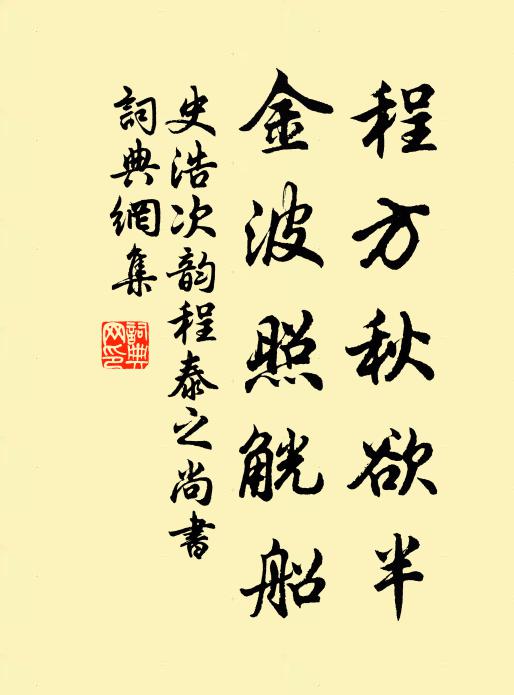 程方秋欲半
金波照觥船
史浩次韵程泰之尚書
詞典網集
詞典網印